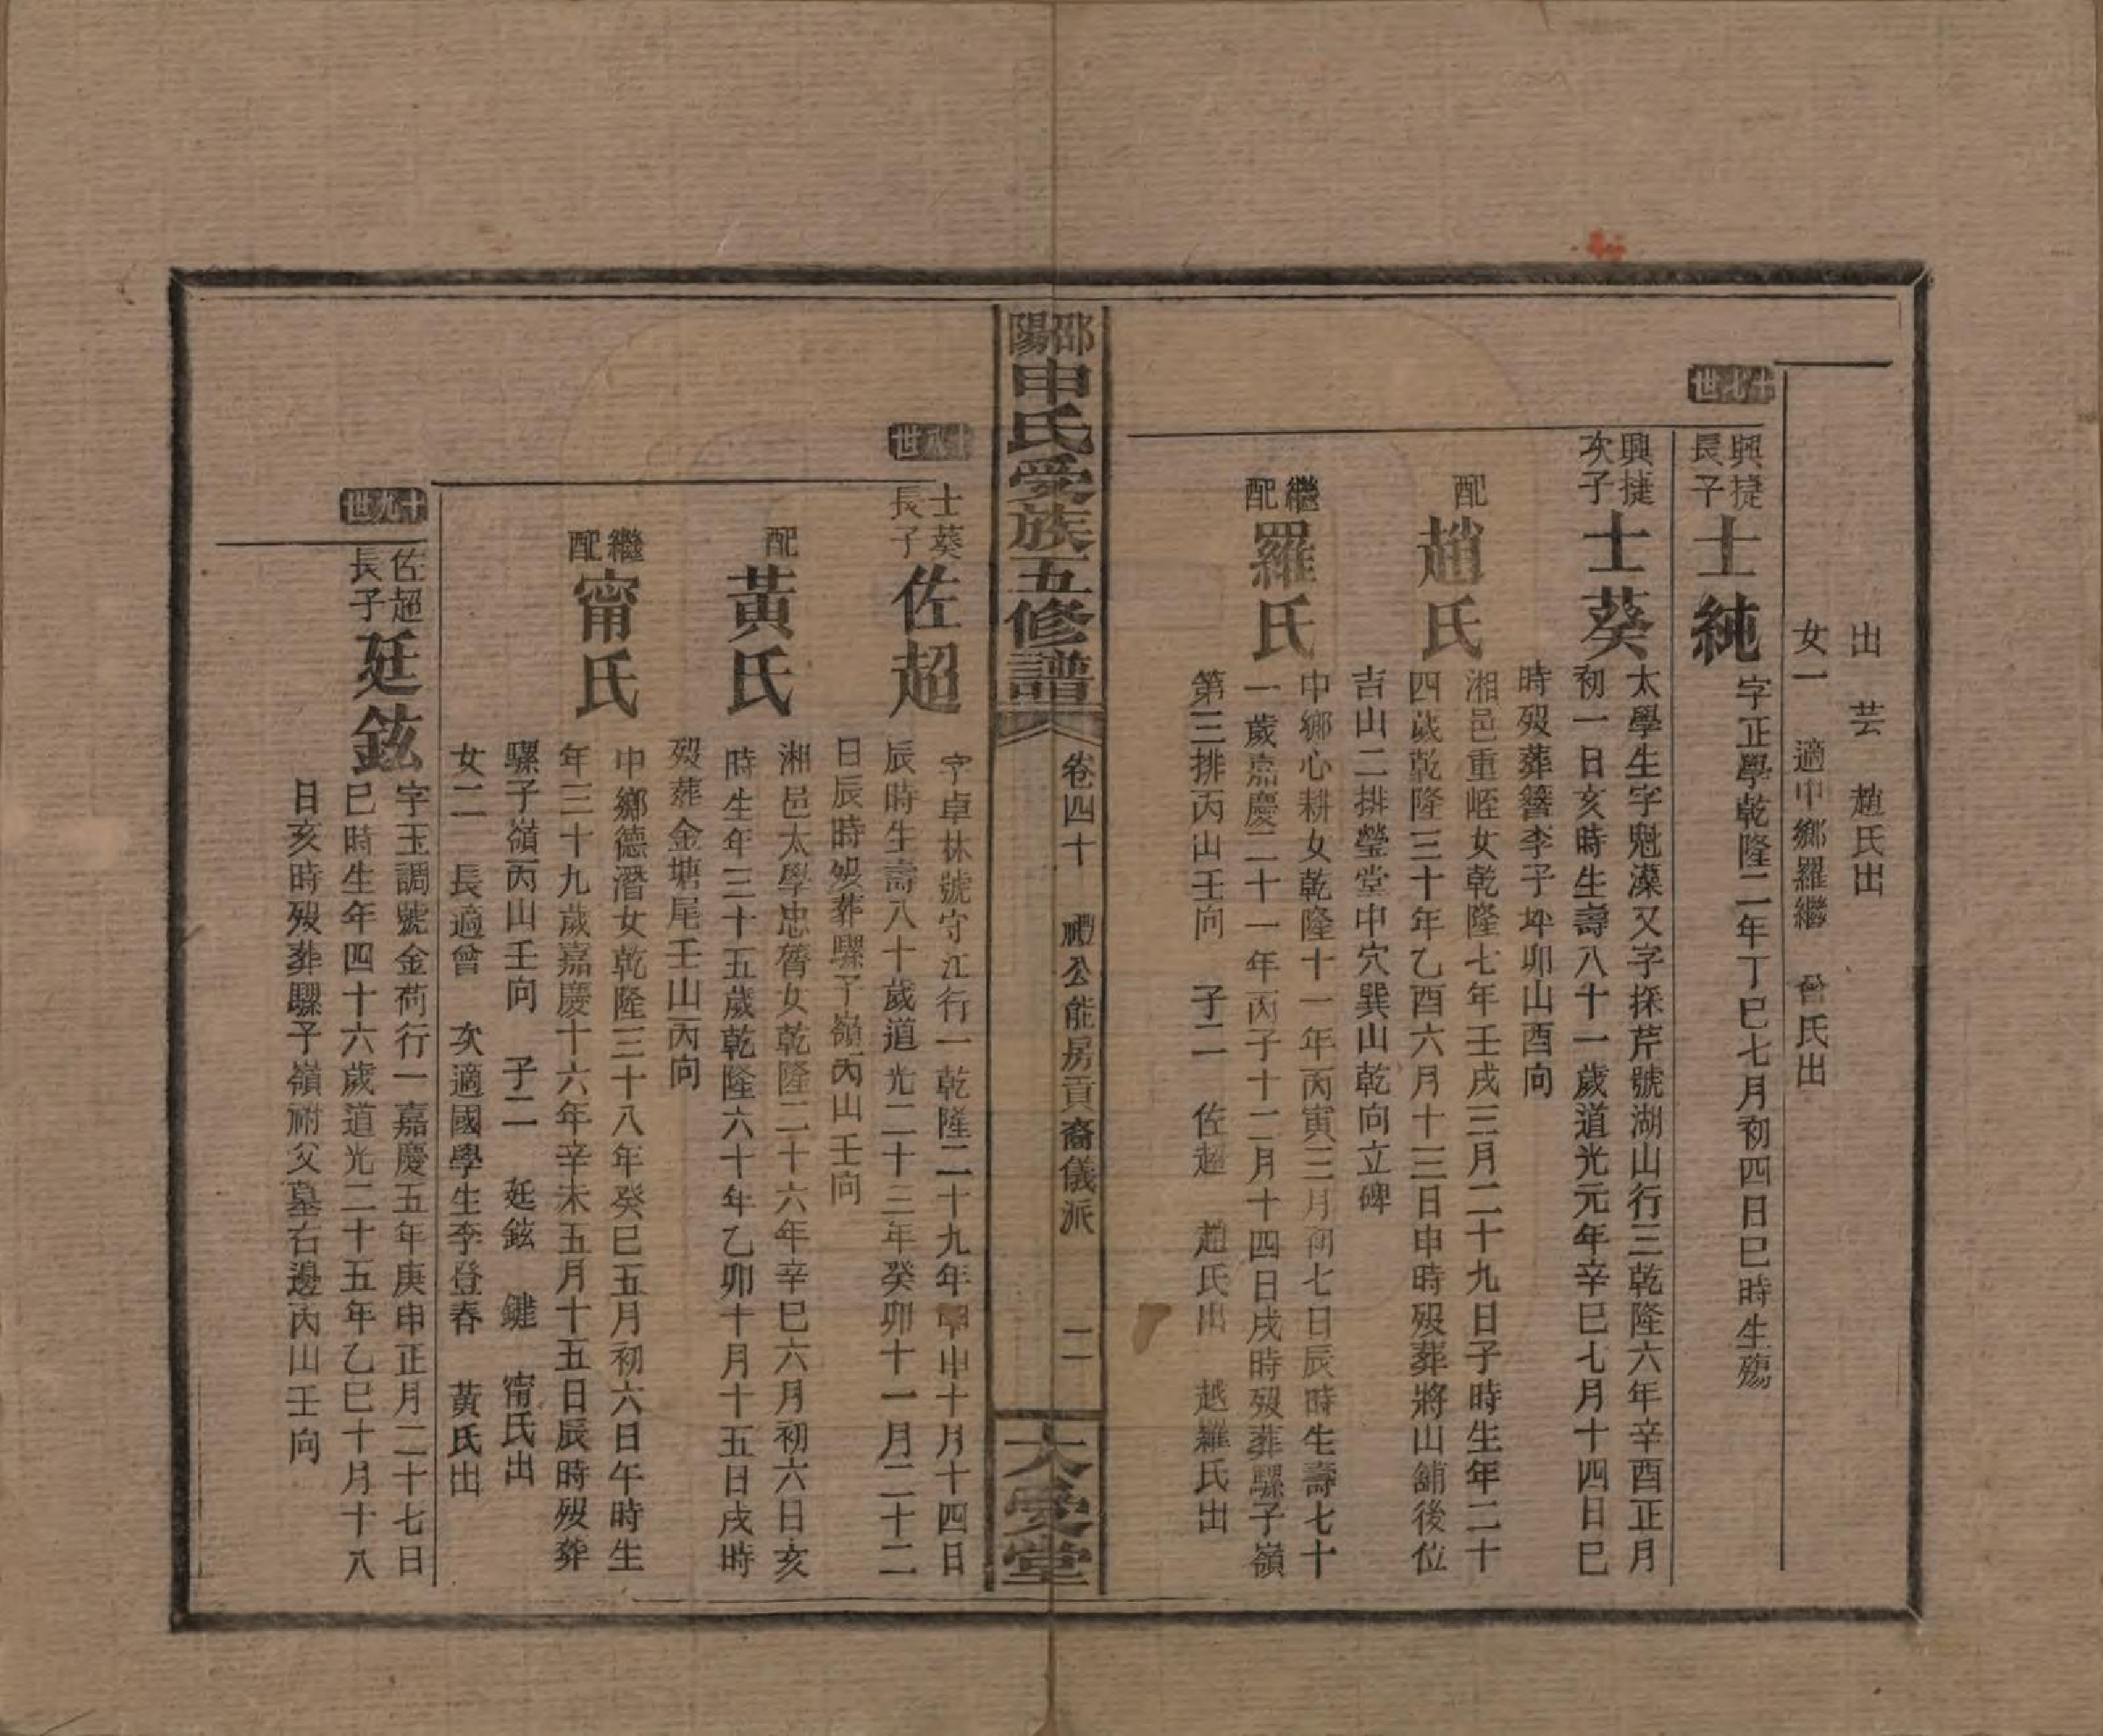 出 芸 趙氏出
女一 適中鄉羅繼 曾氏出
十七世
興捷長子 士純 字正學乾隆二年丁巳七月初四日巳時生殤
興捷次子 士葵 太學生字魁藻又字採芹號湖山行三乾隆六年辛酉正月
初一日亥時生壽八十一歲道光元年辛巳七月十四日巳
時歿葬簪李子坤卯山酉向
配 趙氏 湘邑重峌女乾隆七年壬戌三月二十九日子時生年二十
四歲乾隆三十年乙酉六月十三日申時歿葬將山舖後位
吉山二排塋堂中穴巽山乾向立碑
繼配 羅氏 中鄉心耕女乾隆十一年丙寅三月初七日辰時生壽七十
一歲嘉慶二十一年丙子十二月十四日戌時歿葬騾子嶺
第三排丙山壬向 子二 佐超 趙氏出 越羅氏出
邵陽申氏受族五修譜 卷四十 禮公能房貢裔儀派 二 大受堂
十八世
士葵長子 佐超 字卓林號守江行一乾隆二十九年甲申十月十四日
辰時生壽八十歲道光二十三年癸卯十一月二十二
日辰時歿葬騾子嶺丙山壬向
配 黃氏 湘邑太學忠膺女乾隆二十六年辛巳六月初六日亥
時生年三十五歲乾隆六十年乙卯十月十五日戌時
歿葬金塘尾壬山丙向
繼配 甯氏 中鄉德潛女乾隆三十八年癸巳五月初六日午時生
年三十九歲嘉慶十六年辛未五月十五日辰時歿葬
騾子嶺丙山壬向 子二 廷鉉 鍵 甯氏出
女二 長適曾 次適國學生李登春 黃氏出
十九世
佐超長子 廷鉉 字玉調號金荷行一嘉慶五年庚申正月二十七日
巳時生年四十六歲道光二十五年乙巳十月十八
日亥時歿葬騾子嶺祔父墓右邊丙山壬向